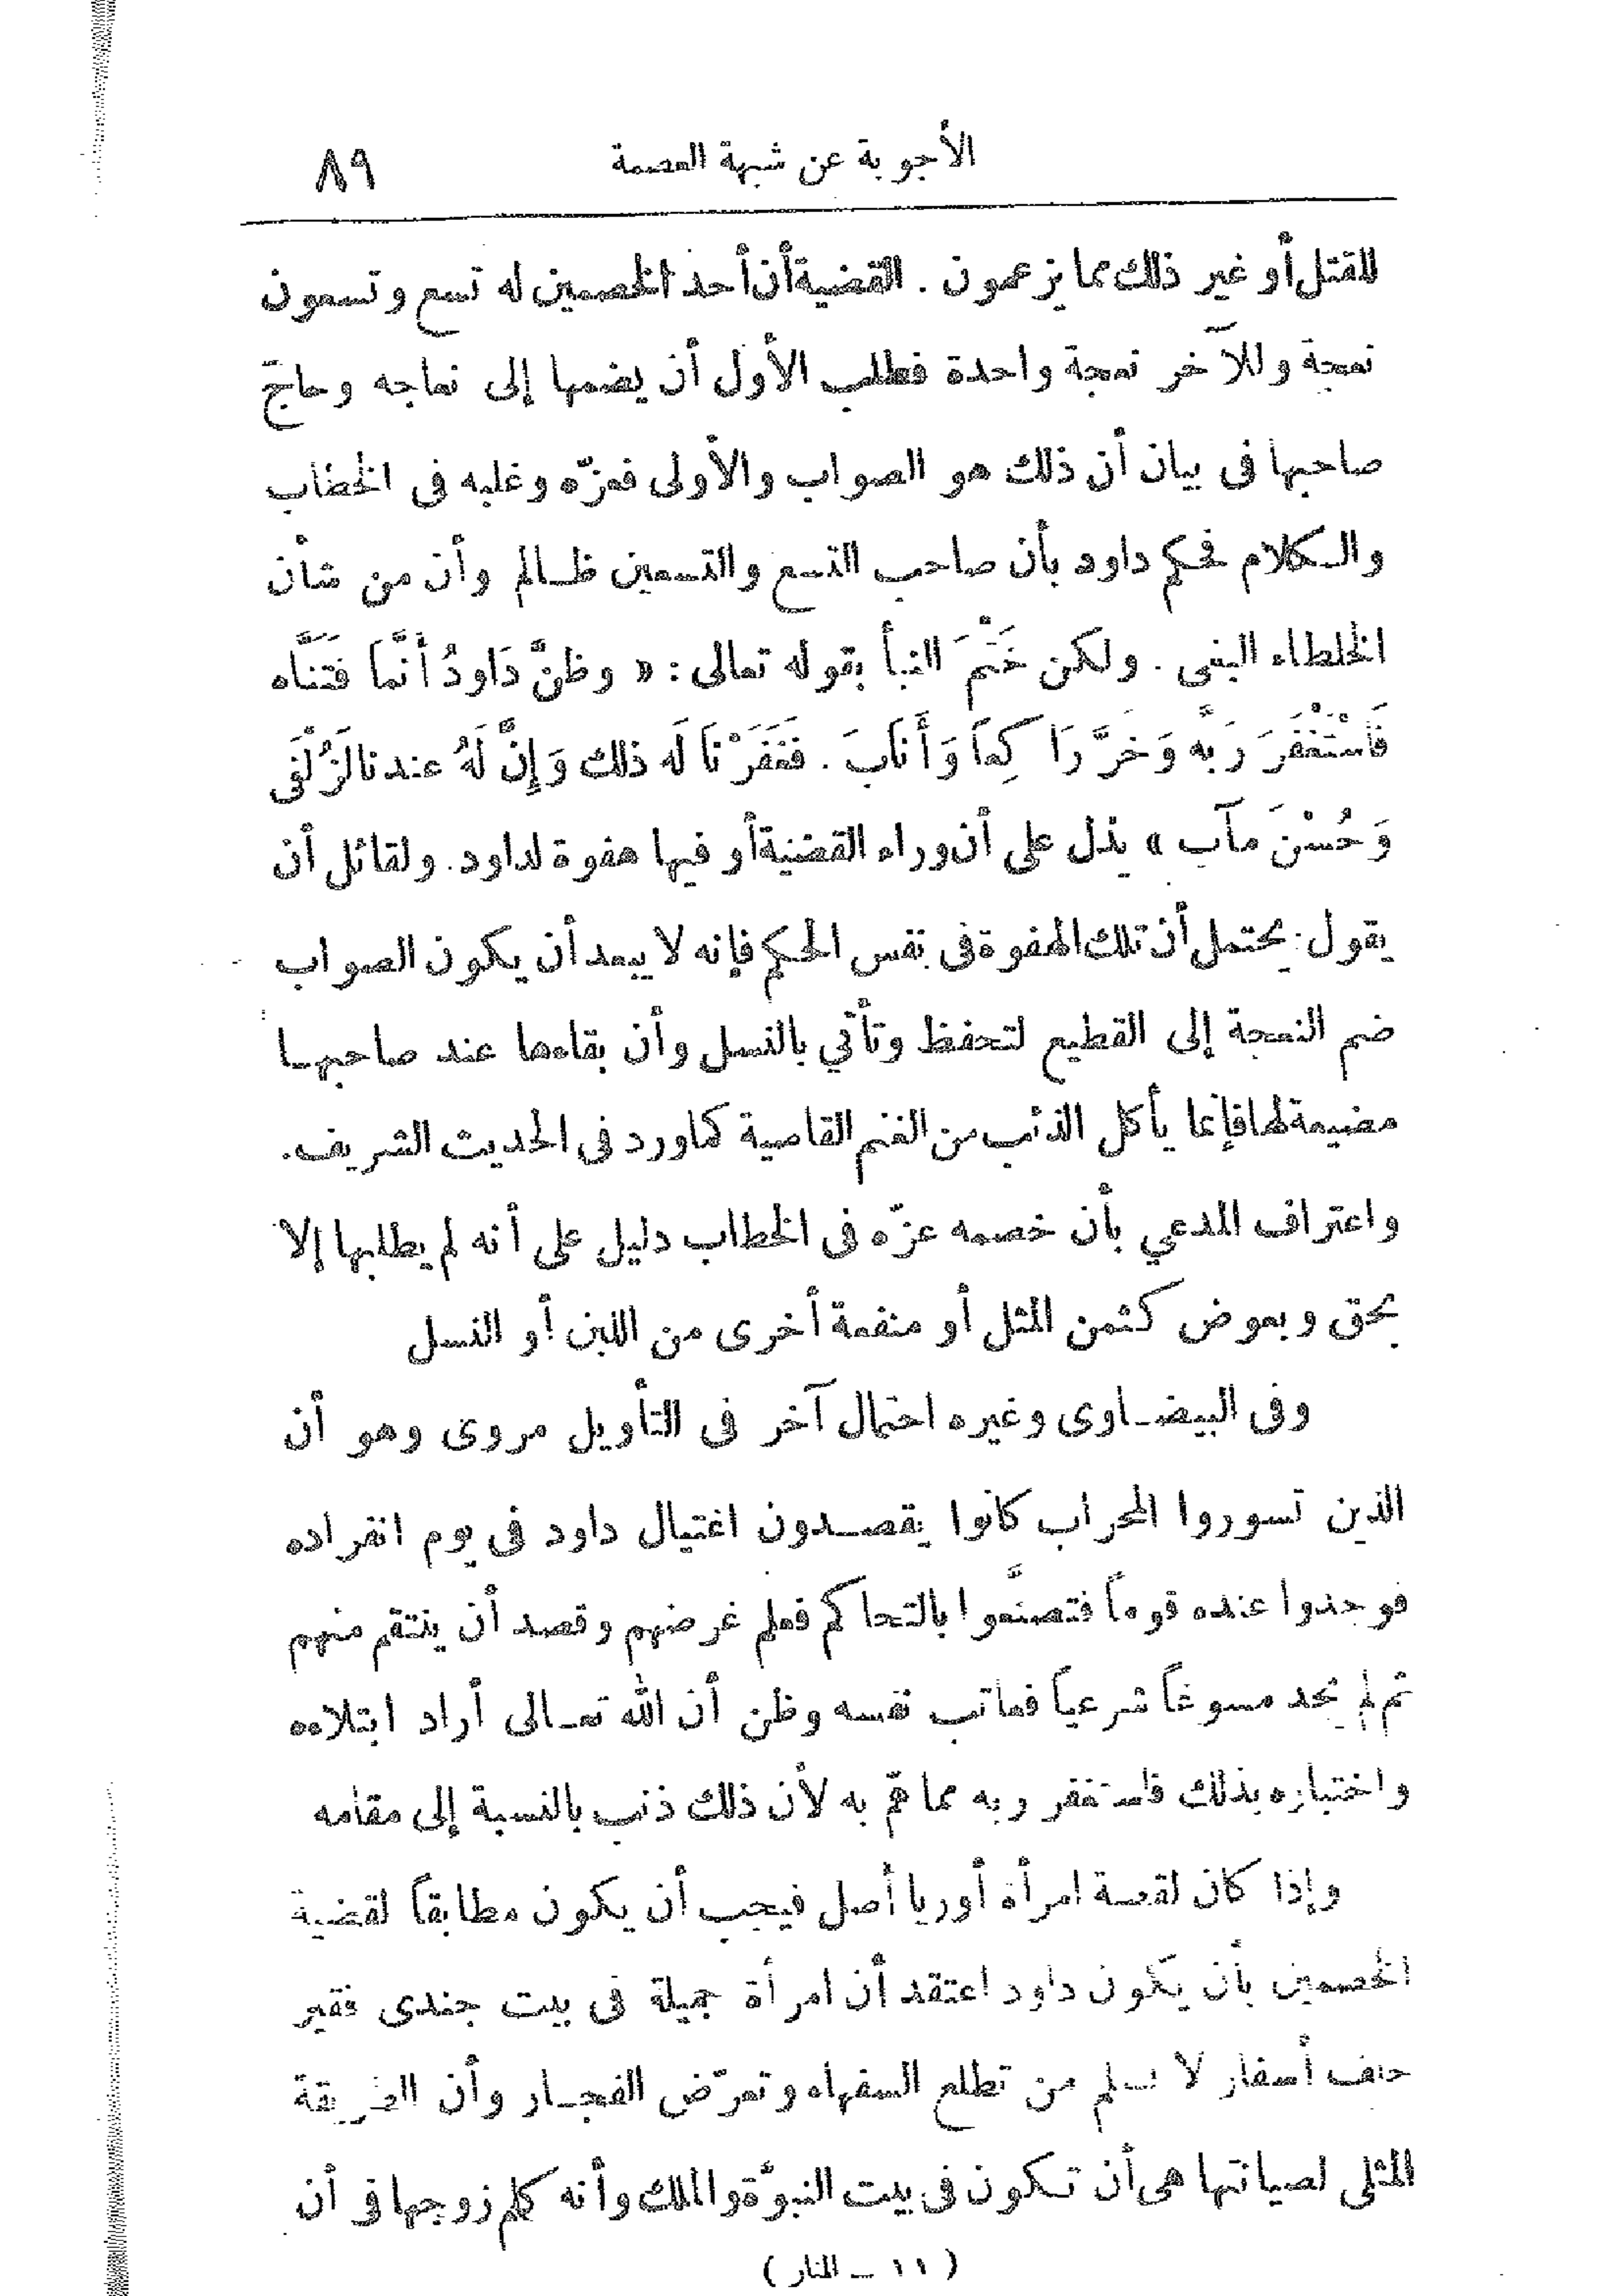 الأجوبة عن شبهة العصمة ٨٩
للقتل أو غير ذلك مما يزعمون . القضية أن أحد الخصمين له تسع وتسعون
نعجة وللآخر نعجة واحدة فطلب الأول أن يضمها إلى نعاجه وحاجّ
صاحبها فى بيان أن ذلك هو الصواب والأولى فعزّه وغلبه فى الخطاب
والكلام فحكم داود بأن صاحب التسع والتسعين ظالم وأن من شأن
الخلطاء البغى . ولكن خَتْمَ النبأ بقوله تعالى : « وظنَّ دَاودُ أنَّما فَتَنَّاه
فَاسْتَغْفَرَ رَبَّه وَخَرَّ رَا كِعاً وَأَنَابَ . فَغَفَرْنَا لَه ذلك وَإِنَّ لَهُ عندنا لَزُلْفَى
وَحُسْنَ مآب » يدل على أن وراء القضية أو فيها هفوة لداود . ولقائل أن
يقول : يحتمل أن تلك الهفوة فى نفس الحكم فإنه لا يبعد أن يكون الصواب
ضم النعجة إلى القطيع لتحفظ وتأتي بالنسل وأن بقاءها عند صاحبها
مضيعة لها فإنما يأكل الذئب من الغنم القاصية كما ورد فى الحديث الشريف .
واعتراف المدعي بأن خصمه عزّه فى الخطاب دليل على أنه لم يطلبها إلا
بحق وبعوض كثمن المثل أو منفعة أخرى من اللبن أو النسل
وفى البيضاوى وغيره احتمال آخر فى التأويل مروى وهو أن
الذين تسوروا المحراب كانوا يقصدون اغتيال داود فى يوم انفراده
فوجدوا عنده قوماً فتصنَّعوا بالتحاكم فعلم غرضهم وقصد أن ينتقم منهم
ثم لم يجد مسوغاً شرعياً فعاتب نفسه وظن أن الله تعالى أراد ابتلاءه
واختباره بذلك فاستغفر ربه مما همّ به لأن ذلك ذنب بالنسبة إلى مقامه
وإذا كان لقصة امرأة أوريا أصل فيجب أن يكون مطابقاً لقضية
الخصمين بأن يكون داود اعتقد أن امرأة جميلة فى بيت جندى فقير
حلف أسفار لا تسلم من تطلع السفهاء وتعرّض الفجار وأن الطريقة
المثلى لصيانتها هى أن تكون فى بيت النبوّة والملك وأنه كلم زوجها فى أن
( ١١ — المنار )